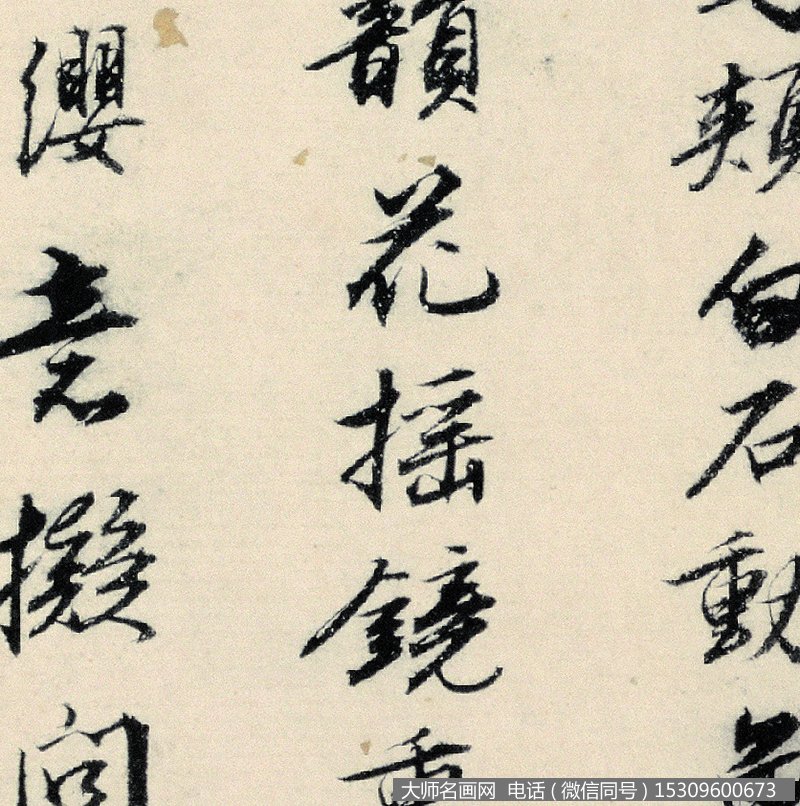 頰白石動
韻花摇鏡重
纓意擬問
大师名画网 电话（微信同号）15309600673